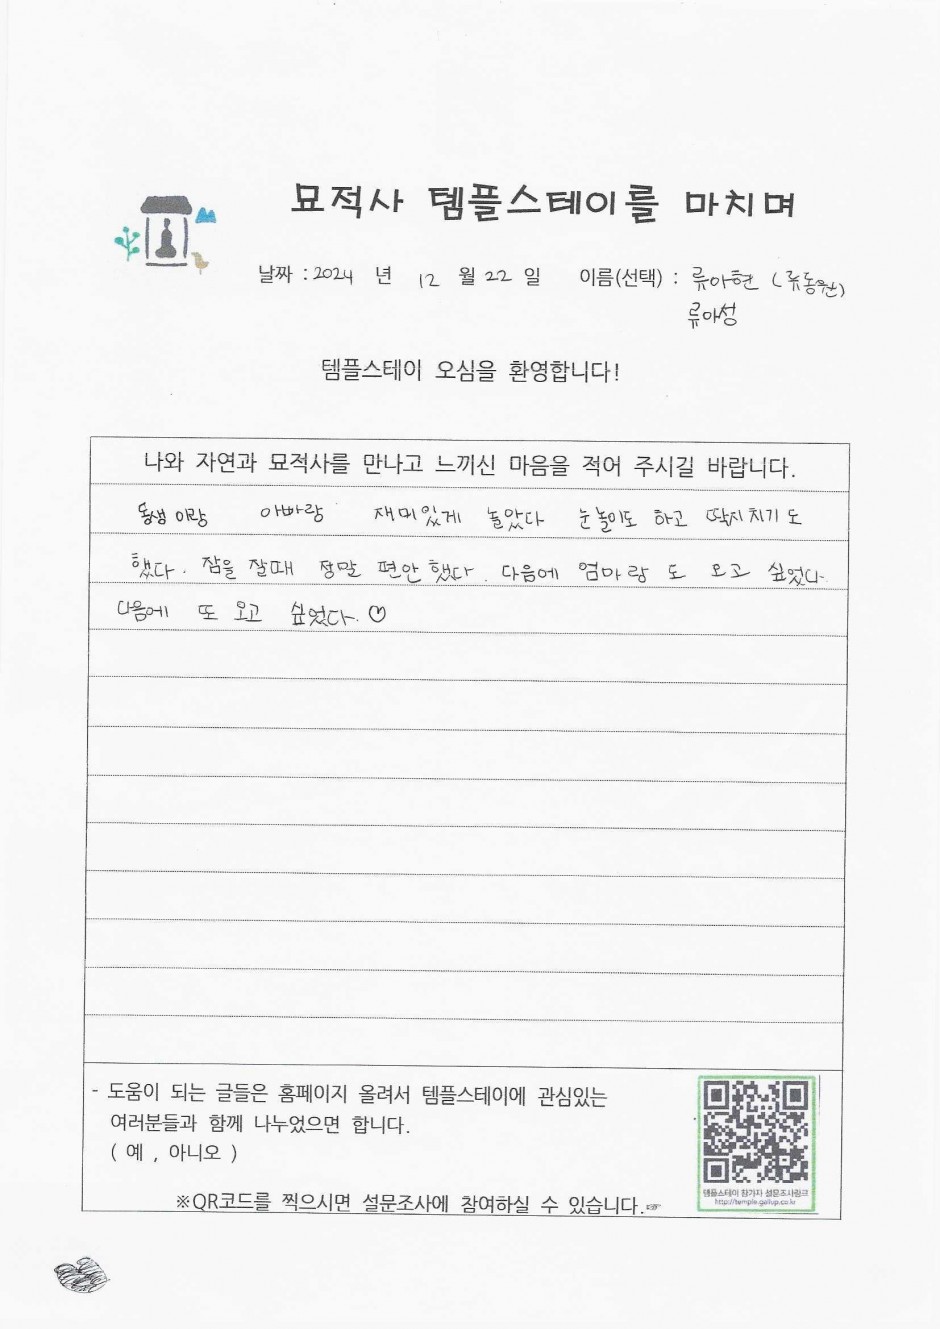 묘적사 템플스테이를 마치며
날짜 : 2024 년 12 월 22 일 이름(선택) : 류아현 (류동원)
류아성
템플스테이 오심을 환영합니다!
나와 자연과 묘적사를 만나고 느끼신 마음을 적어 주시길 바랍니다.
동생이랑 아빠랑 재미있게 놀았다 눈놀이도 하고 딱지치기도
했다. 잠을 잘때 정말 편안했다. 다음에 엄마랑도 오고 싶었다.
다음에 또 오고 싶었다. ♡
- 도움이 되는 글들은 홈페이지 올려서 템플스테이에 관심있는
여러분들과 함께 나누었으면 합니다.
( 예 , 아니오 )
※QR코드를 찍으시면 설문조사에 참여하실 수 있습니다.☞
템플스테이 참가자 설문조사링크
http://temple.gallup.co.kr